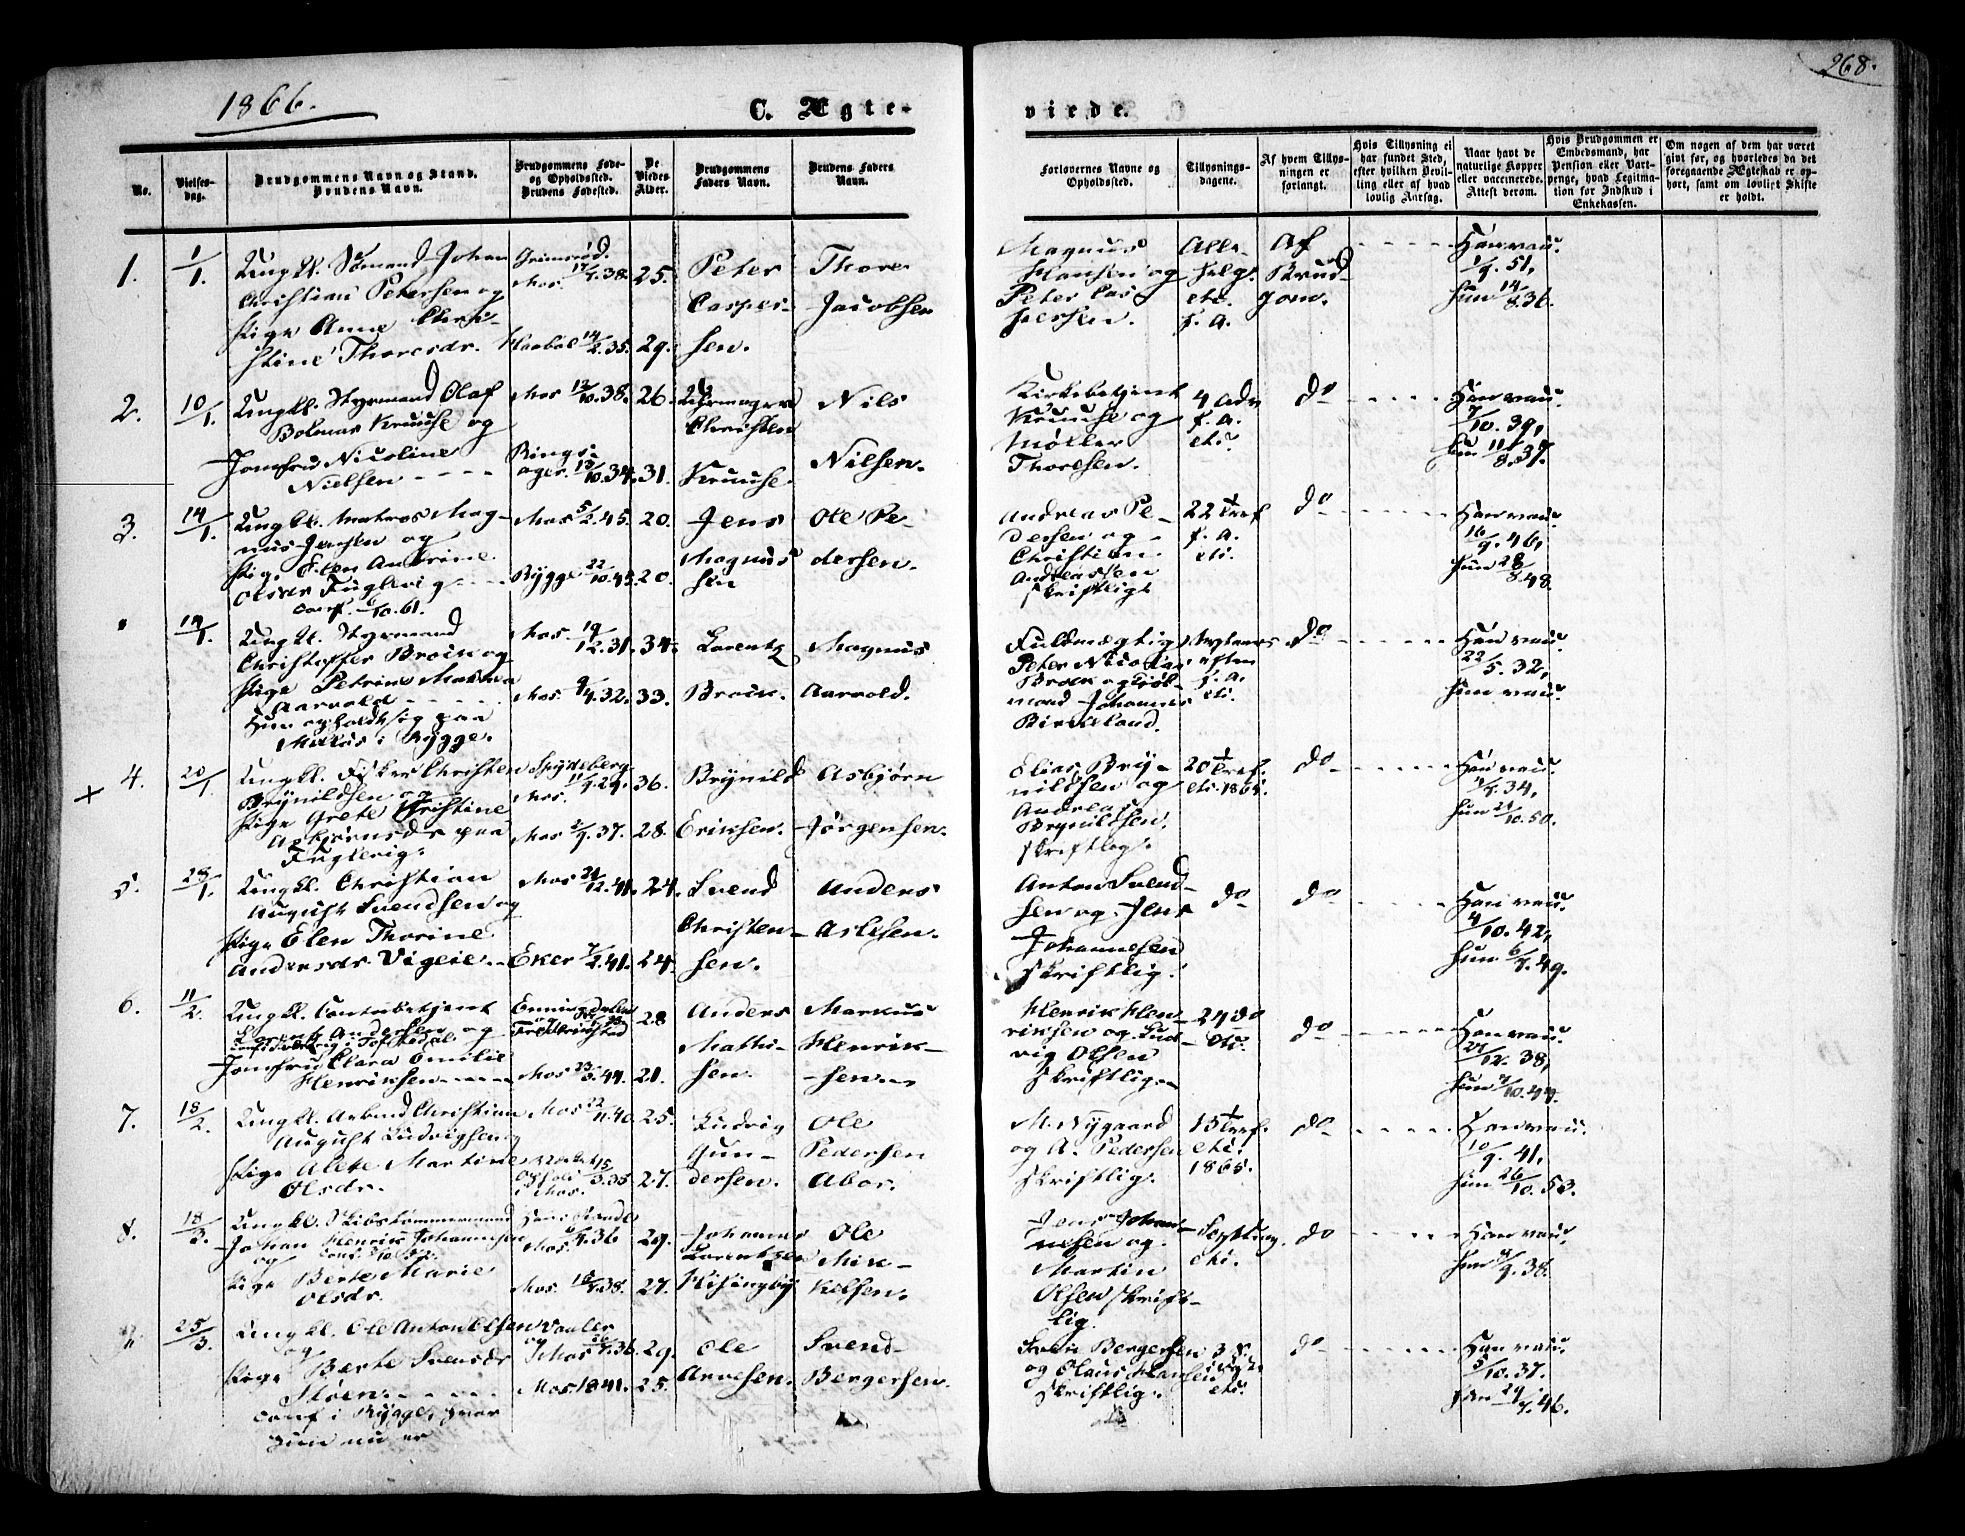 1866.
C. Ægte-
viede.
268.
No.
Vielses-
dag.
Brudgommens Navn og Stand.
Brudens Navn.
Brudgommens Føde-
og Opholdssted.
Brudens Fødested.
De
Viedes
Alder.
Brudgommens
Faders Navn.
Brudens Faders
Navn.
Forlovernes Navne og
Opholdssted.
Tillysnings-
dagene.
Af hvem Tillys-
ningen er
forlangt.
Hvis Tillysning ei
har fundet Sted,
efter hvilken Bevil-
ling eller af hvad
lovlig Aarsag.
Naar havt de
naturlige Kopper
eller vaccinerede.
Attest derom.
Hvis Brudgommen er
Embedsmand, har
Pension eller Vart-
penge, hvad Legitima-
tion for Indskud i
Enkekassen.
Om nogen af dem har været
gift før, og hvorledes da det
foregaaende Ægteskab er op-
hørt, samt om lovligt Skifte
er holdt.
1.
1/1.
Ungkl. Sømand Johan
Christian Petersen og
Pige Anne Chri-
stine Thoresdr.
Grimsrød.
Mos. 38.
14/2.35.
25.
29.
Peter
Casper-
sen.
Thore
Jacobsen
Magnus
Hansen og
Peter Cas-
persen.
Alle
Helg.
etc.
f. a.
Af
Brud-
gom.
Han vac.
1/9.51,
hun 14/8.36.
2.
10/1.
Ungkl. Styrmand Olaf
Kruuse og
Jomfru Nicoline
Nielsen
Mos 12/10.38.
Rings-
ager. 13/10.34.
26.
31.
Uhrmager
Christen
Kruuse.
Nils
Nilsen.
Kirkebetjent
Kruuse og
Møller
Thoresen.
4 Adv
f. a.
etc.
do
Han vac.
7/10.39,
hun 11/8.37.
3.
14/1.
Ungkl. Matros Mag-
nus Jensen og
Pige Elen Andrine
Olsdr Fuglevig
conf. 1/10.61.
Mos 5/2.45.
Rygge 22/10.45.
20.
20.
Jens
Magnus
sen
Ole Pe-
dersen.
Andreas Pe-
dersen og
Christian
Andreassen
skriftligt
22 Tref
f. a.
etc.
do
Han vac.
16/9.46,
hun 28/8.48.
14/1.
Ungkl. Styrmand
Christoffer Brock og
Pige Petrine
Aarvold
Hun opholdt sig paa
Melløs i Rygge.
Mos 19/12.31.
Mos 9/4.32.
34.
33.
Lorentz
Brock.
Magnus
Aarvold.
Fuldmægtig
Peter Nicolai
Brock og
mand Johannes
Birkeland.
f. a.
etc.
do
Han vac.
22/5.32,
hun vac.
4.
20/1.
Ungkl. Fisker Christen
Brynildsen og
Pige Grete Christine
Asbjørnsdr paa
Fuglevig.
Spydeberg
Mos. 11/9.29.
Mos 2/9.37.
36.
28.
Brynild
Eriksen.
Asbjørn
Jörgensen.
Elias Bry-
nildsen og
Andreas
Brynildsen.
skriftlig.
20 Tref.
etc. 1865.
do
Han vac.
34,
hun 21/10.50.
5.
28/1.
Ungkl. Christian
August Svendsen og
Pige Elen Thorine
Andersdr. Vigeie
Mos 21/12.41.
Eker 7/2.41.
24.
24.
Svend
Christen-
sen.
Anders
Aslesen.
Anton Svend-
sen og Jens
Johannesen
skriftlig.
do
do
Han vac.
4/10.42,
hun 6/7.49.
6.
11/2.
Ungkl. Contorbetjent
Andersen og
Jomfru Clara Emilie
Henriksen
Enningdalen
Fredrikstad
Mos 23/3.44.
28
21.
Anders
Mathi-
sen.
Markus
Henrik-
sen
Henrik Hen-
riksen og Lud-
vig Olsen
skriftlig
24 do
etc.
do
Han vac.
21/12.38,
hun 7/10.44.
7.
18/2.
Ungkl. Arbmd Christian
August Ludvigsen
Pige Alete Martine
Olsdr.
Mos 22/11.40.
i Mos.
25.
27.
Ludvig
Gun-
dersen.
Ole
Pedersen
Abor.
M. Nygaard
og A. Pedersen
skriftlig.
15 Tref.
etc.
1865.
do
Han vac.
10/9.41,
hun 26/10.53.
8.
18/3.
Ungkl. Skibstømmermand
Johan Henrik Johannesen
og
Pige Berte Marie
Olsdr.
Mos. 36
Mos. 38.
29.
27.
Johannes
Lorentzen
Ole
Mik-
kelsen.
Jens Johan-
nesen og
Martin
Olsen skrift-
lig.
etc.
do
Han vac.
hun 9.38.
25/3.
Ungkl. Ole Anton Olsen
og
Pige Berte Svensdr
Moen.
conf i Rygge, hvor
hun nu er
Vaaler
og
Mos 36.
Mos. 1841.
29.
25.
Ole
Arnesen.
Svend
Bergersen.
Svend Bergersen
og Olaus Hansen
skriftlig.
etc.
do
Han vac.
3/10.37.
hun 29/7.46.